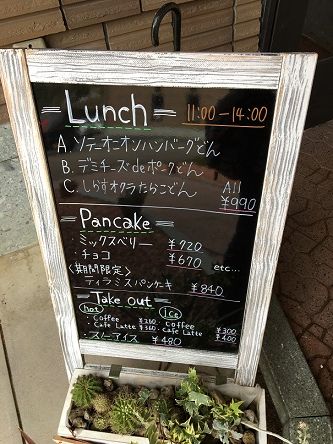 Lunch 11:00-14:00
A ソテーオニオンハンバーグどん
B. デミチーズdeポークどん
C. しらすオクラたらこどん All
¥990
Pancake
・ミックスベリー ¥720
・チョコ ¥670 etc...
〈期間限定〉
ティラミスパンケーキ ¥840
Take out
hot ice
・Coffee ¥260 ・Coffee ¥300
・Cafe Latte ¥360 ・Cafe Latte ¥400
・スノーアイス ¥480